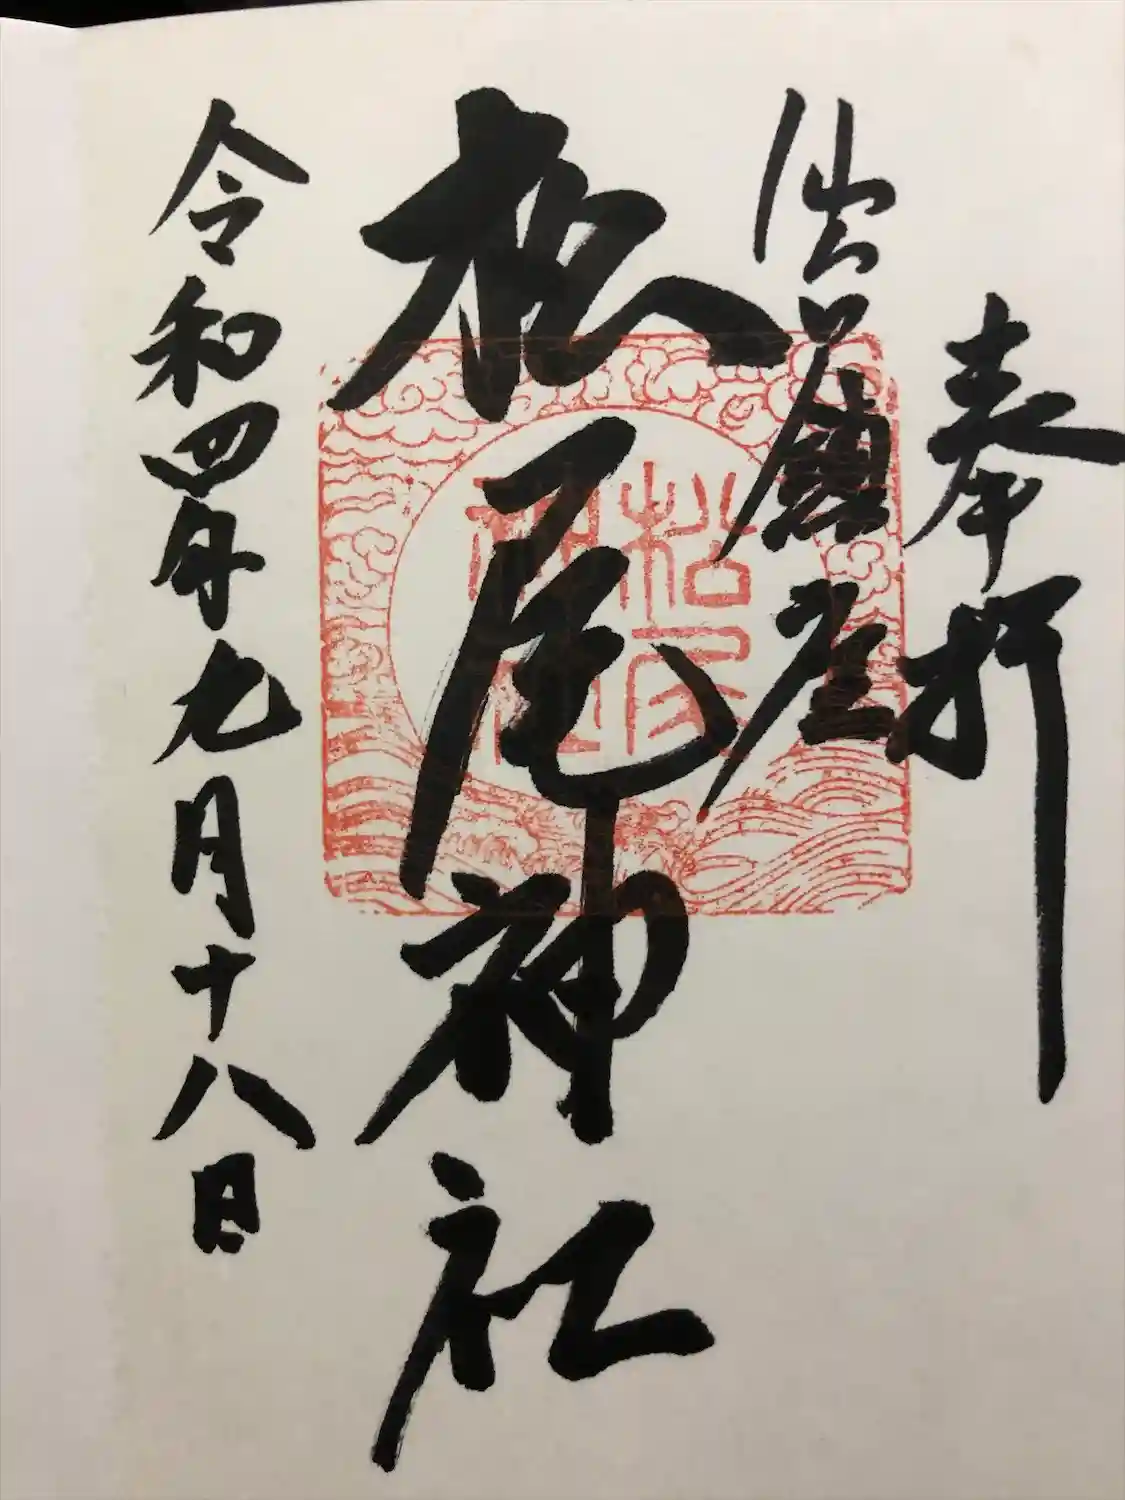 奉拝
鎮座
松尾神社
令和四年九月十八日
松尾
神社